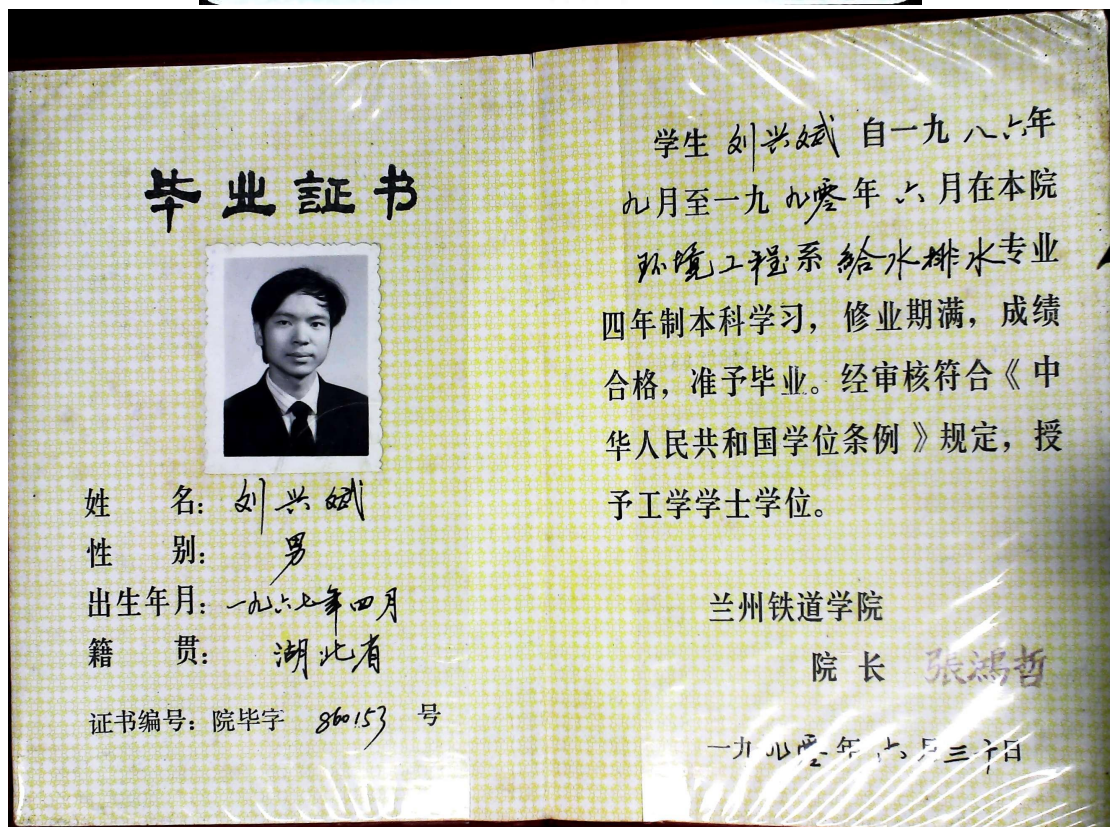 毕业証书
姓名：刘兴斌
性别：男
出生年月：一九六七年四月
籍贯：湖北省
证书编号：院毕字 860153 号
学生 刘兴斌 自一九八六年
九月至一九九零年六月在本院
环境工程系給水排水专业
四年制本科学习，修业期满，成绩
合格，准予毕业。经审核符合《中
华人民共和国学位条例》规定，授
予工学学士学位。
兰州铁道学院
院长 張鴻哲
一九九零年六月三十日